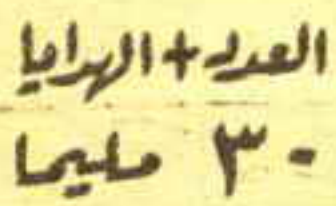 العدد + الهدايا
٣٠ مليما